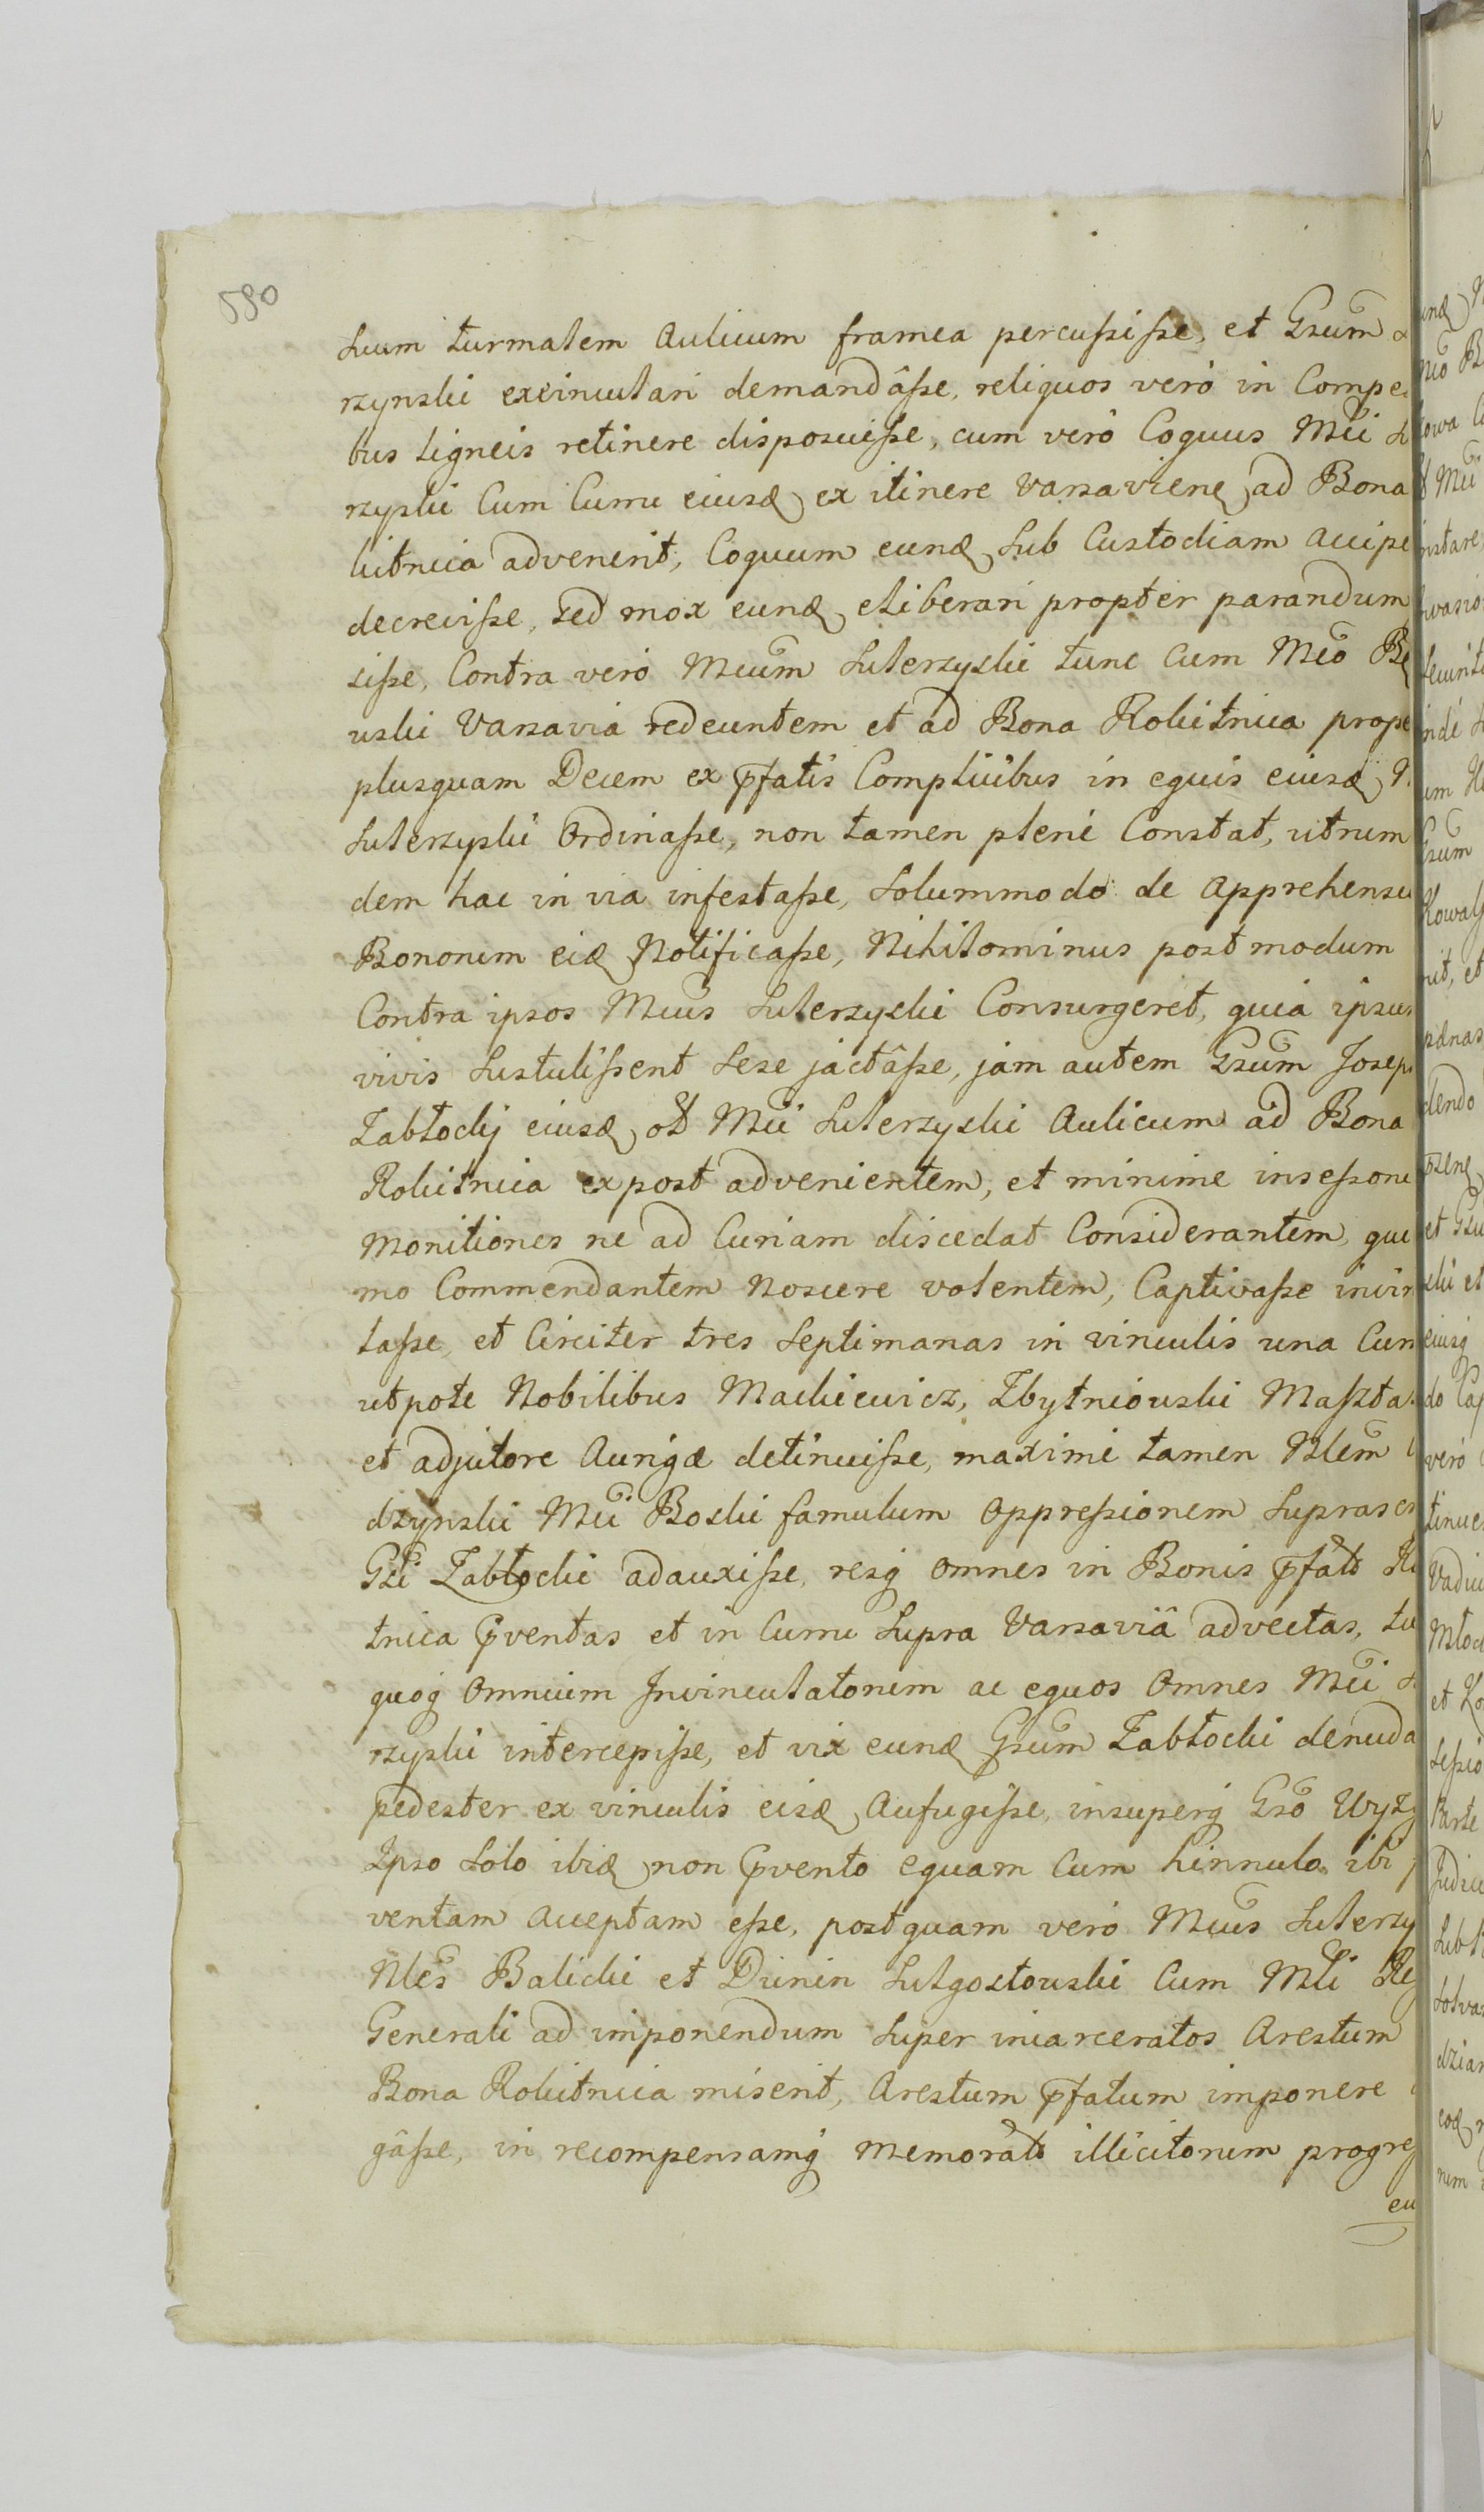 590
suum turmalem Aulicum framea percussisse, et Gsum
rzynski exvinculari demandâsse, reliquos verò in Compe
bus ligneis retinere disposuisse, cum verò Coquus Mci S
rzyski Cum Curru eiusđ ex itinere Varsavienẹ ad Bona
kitnica advenerit, Coquum eunđ Sub Custodiam accipe
decrevisse, sed mox eunđ eliberari propter parandum
sisse, Contra verò Mcum Suterzyski tunc Cum Mco Be
uski Varsavia redeuntem et ad Bona Rokitnica prope
plusquam Decem ex p̃fatis Complicibus in equis eiusđ M
Suterzyski Ordinasse, non tamen plenè Constat, utrum
dem hac in via infestasse, Solummodo de Apprehensu
Bonorum eiđ Notificasse, Nihilominus postmodum
Contra ipsos Mcus Suterzyski Consurgeret, quia ipsum
vivis Sustulissent Sese jactâsse, jam autem Gsum Josep
Zabłocky eiusđ oł Mci Suterzyski Aulicum ad Bona
Rokitnica expost advenientem, et minime insessoru
Monitiones ne ad Curiam discedat Considerantem, qui
mo Commendantem Noscere volentem, Captivasse invin
lasse, et Circiter tres Septimanas in vinculis una Cum
utpote Nobilibus Mackiewicz, Zbytniouski Masztal
et adjutore Aurigæ detinuisse, maximè tamen Nlem
dzynski Mci Boski famulum Oppressionem Suprascr
Gsi Zabłocki adauxisse, resq̃ Omnes in Bonis p̃fatẽ Ro
tnica p̃ventas et in Curru Supra Varsaviâ advectas, tu
quoq̃ Omnium Invinculatorum ac equos Omnes Mci S
rzyski intercepisse, et vix eunđ Gsum Zabłocki denuda
pedester ex vinculis eisđ Aufugisse, insuperq̃ Gso Wyzg
Ipso Solo ibiđ non p̃vento equam Cum hinnulo ibi p
ventam Acceptam esse, postquam verò Mcus Suterzy
Nles Balicki et Dunin Sulgostouski Cum Mli Re
Generali ad imponendum Super incarceratos Arestum
Bona Rokitnica miserit, Arestum p̃fatum imponere
gâsse, in recompensamq̃ Memoratẽ illicitorum progres
eu